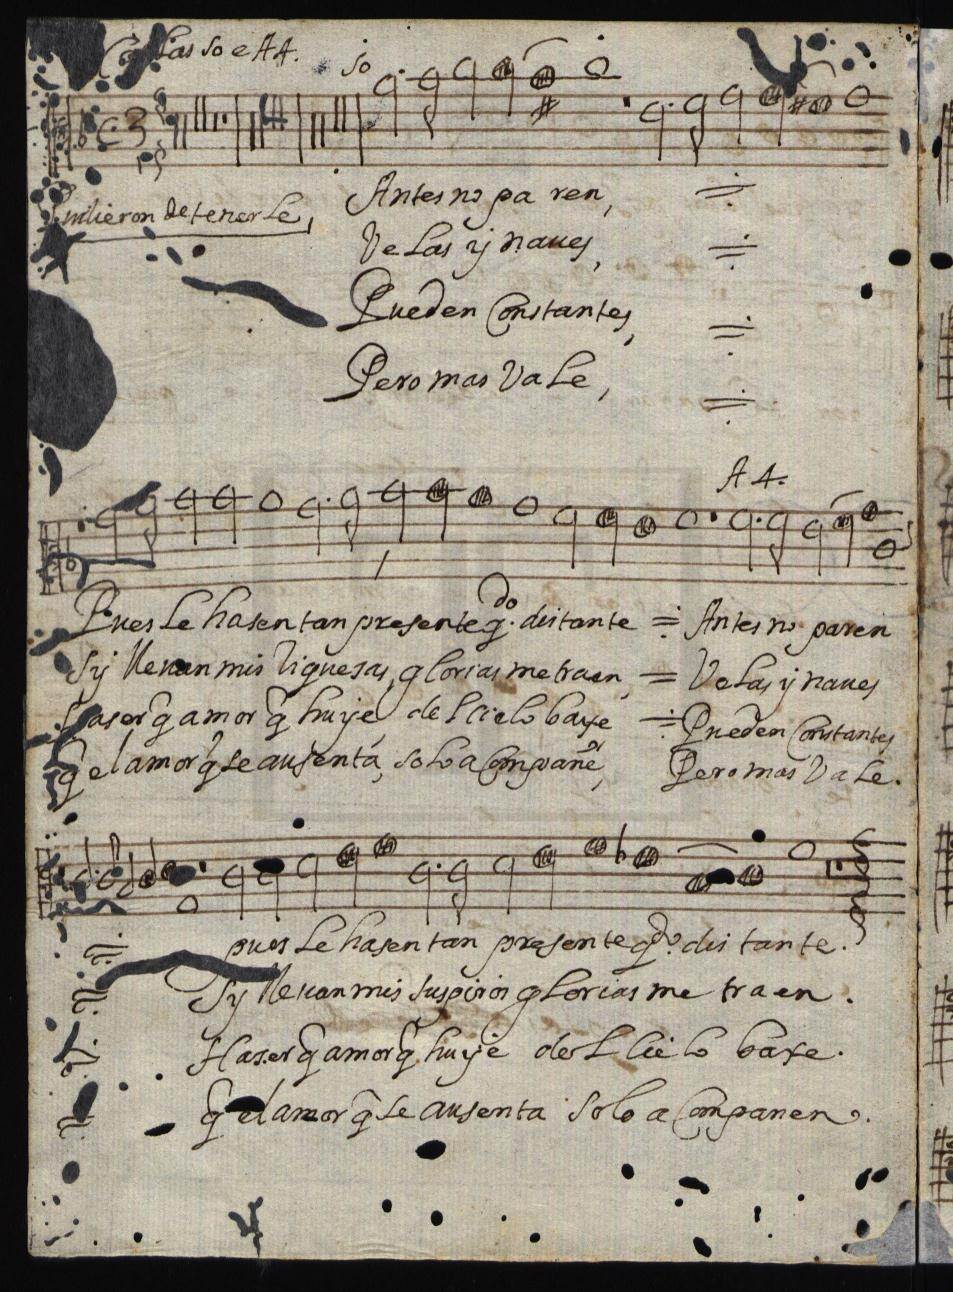 Coplas so e A4. so
Pudieron detenerle,
Antes no pa ren,
Velas y naues,
Pueden Constantes,
Pero mas Vale,
A 4.
Pues le hasen tan presente q̃.do distante = Antes no paren
Sy lleuan mis Riquesas, glorias me traen, = Velas y naues
haser q̃ amor q̃ huye del cielo baxe = Pueden Constantes
q̃ el amor q̃ se ausenta, solo a Compañe, Pero mas Vale.
pues le hasen tan presente q̃do. dis tante.
Sy lleuan mis suspiros glorias me traen.
Haser q̃ amor q̃ huye del Cielo baxe.
q̃ el amor q̃ se ausenta solo a Companen.